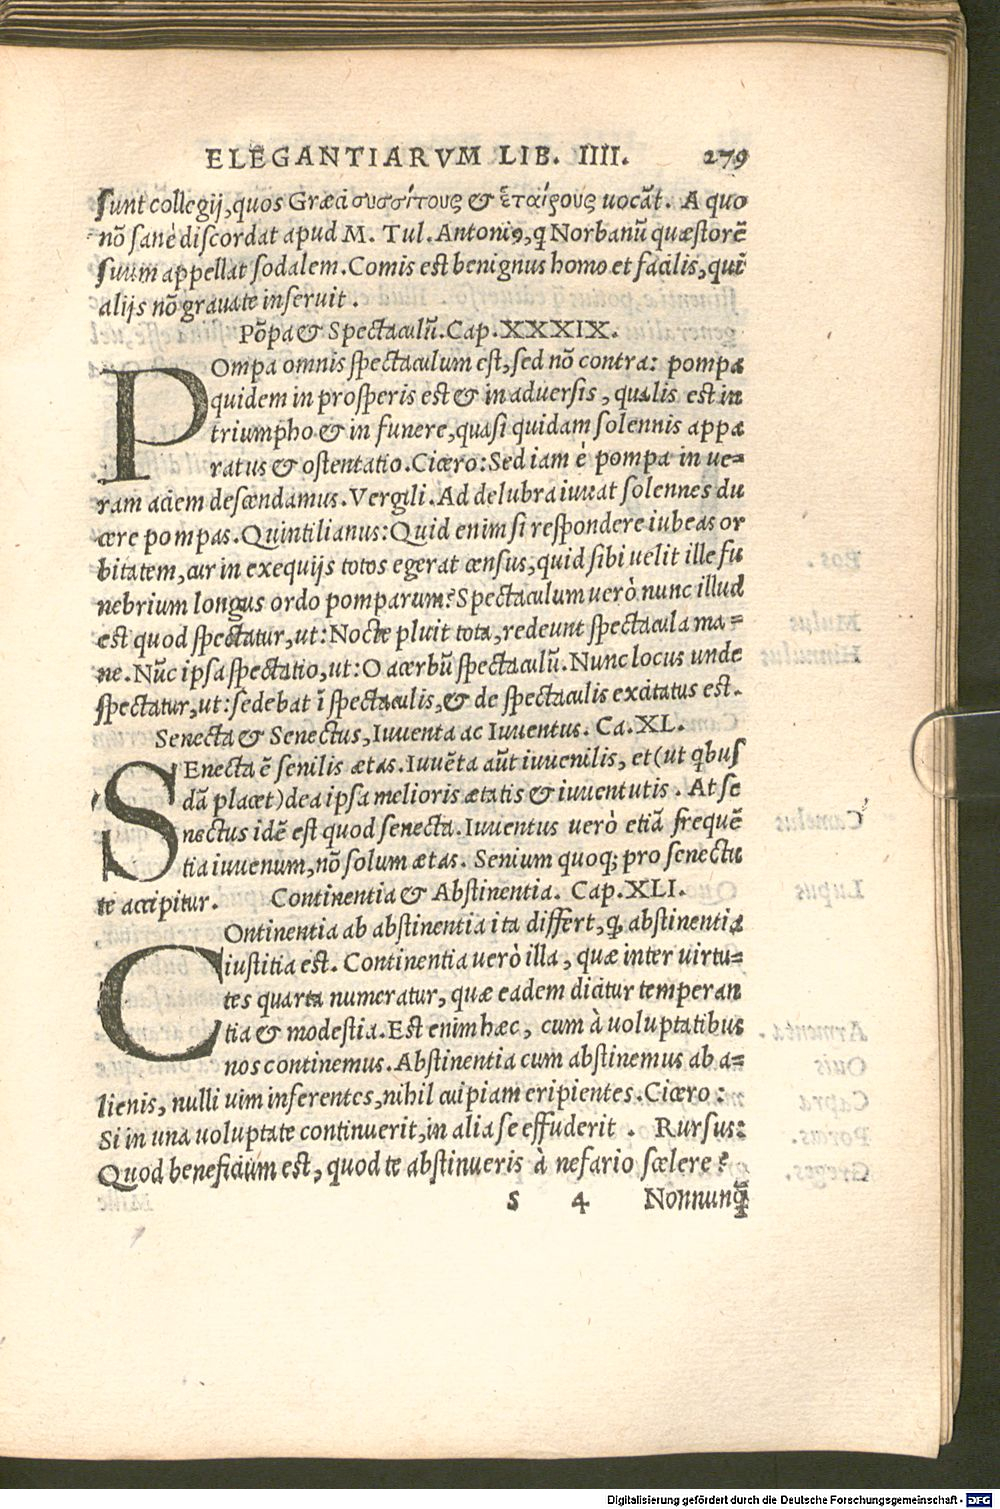 ELEGANTIARVM LIB. IIII. 279
sunt collegij, quos Græci συσσίτους & ἑταίρους uocãt. A quo
nõ sanè discordat apud M. Tul. Antoniꝰ, q Norbanũ quæstorẽ
suum appellat sodalem. Comis est benignus homo et facilis, quĩ
alijs nõ grauate inseruit.
Põpa & Spectaculũ. Cap. XXXIX.
POmpa omnis spectaculum est, sed nõ contra: pompa
quidem in prosperis est & in aduersis, qualis est in
triumpho & in funere, quasi quidam solennis appa
ratus & ostentatio. Cicero: Sed iam è pompa in ue=
ram aciem descendamus. Vergili. Ad delubra iuuat solennes du
cere pompas. Quintilianus: Quid enim si respondere iubeas or
bitatem, cur in exequijs totos egerat census, quid sibi uelit ille fu
nebrium longus ordo pomparum? Spectaculum uerò nunc illud
est quod spectatur, ut: Nocte pluit tota, redeunt spectacula ma=
ne. Nũc ipsa spectatio, ut: O acerbũ spectaculũ. Nunc locus unde
spectatur, ut: sedebat ĩ spectaculis, & de spectaculis excitatus est.
Senecta & Senectus, Iuuenta ac Iuuentus. Ca. XL.
SEnecta ẽ senilis ætas. Iuuẽta aũt iuuenilis, et (ut qbus
dã placet) dea ipsa melioris ætatis & iuuentutis. At se
nectus idẽ est quod senecta. Iuuentus uerò etiã frequẽ
tia iuuenum, nõ solum ætas. Senium quoq; pro senectu
te accipitur. Continentia & Abstinentia. Cap. XLI.
COntinentia ab abstinentia ita differt, ꝙ abstinentia
iustitia est. Continentia uerò illa, quæ inter uirtu=
tes quarta numeratur, quæ eadem dicitur temperan
tia & modestia. Est enim hæc, cum à uoluptatibus
nos continemus. Abstinentia cum abstinemus ab a=
lienis, nulli uim inferentes, nihil cuipiam eripientes. Cicero:
Si in una uoluptate continuerit, in alia se effuderit. Rursus:
Quod beneficium est, quod te abstinueris à nefario scelere?
s 4 Nonnunq̃
Digitalisierung gefördert durch die Deutsche Forschungsgemeinschaft - DFG